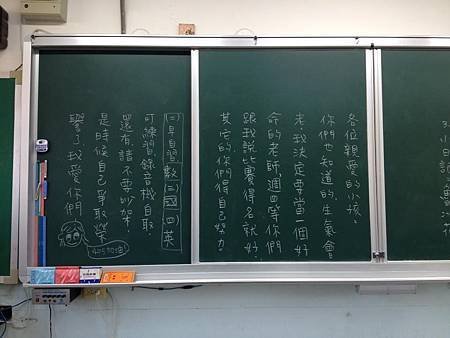 各位親愛的小孩,
你們也知道的生氣會
老,我決定要當一個好
命的老師,週四等你們
跟我說比賽得名就好,
其它的你們得自己努力。
(二)早自習數(三)國(四)英
可練習,錄音機自取
還有,請不要吵架,
是時候自己爭取榮
譽了,我愛你們
405加油!